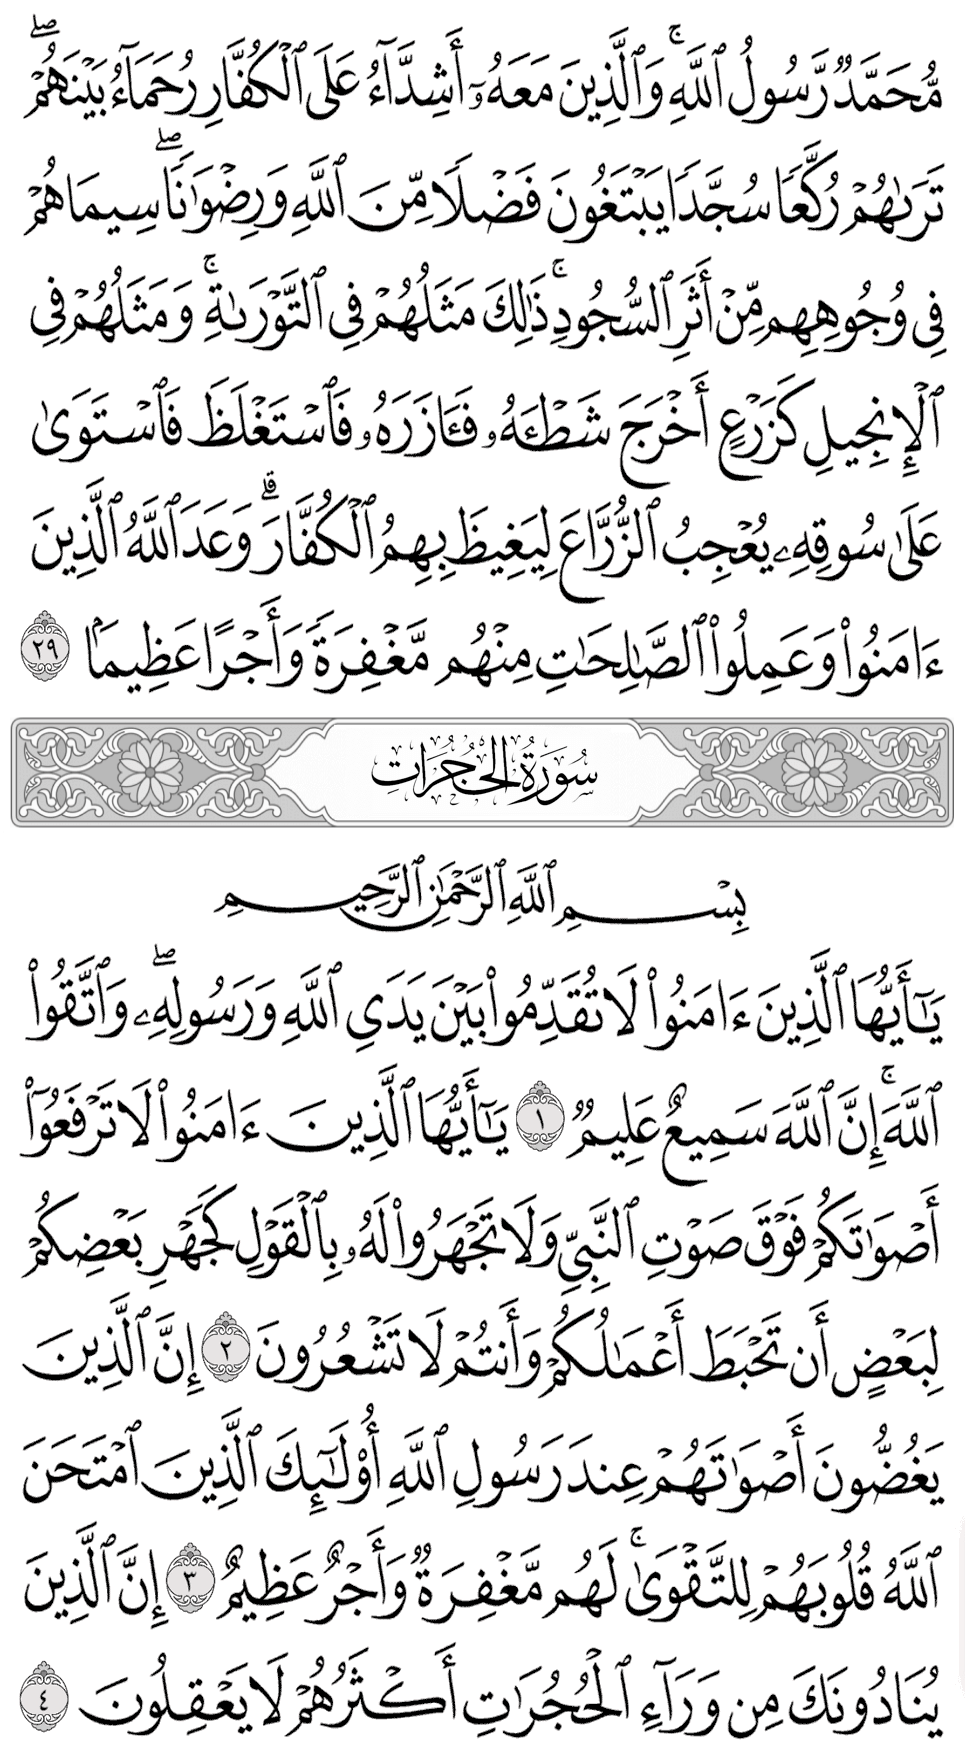 مُّحَمَّدٌ رَّسُولُ ٱللَّهِۚ وَٱلَّذِينَ مَعَهُۥٓ أَشِدَّآءُ عَلَى ٱلۡكُفَّارِ رُحَمَآءُ بَيۡنَهُمۡۖ
تَرَىٰهُمۡ رُكَّعٗا سُجَّدٗا يَبۡتَغُونَ فَضۡلٗا مِّنَ ٱللَّهِ وَرِضۡوَٰنٗاۖ سِيمَاهُمۡ
فِي وُجُوهِهِم مِّنۡ أَثَرِ ٱلسُّجُودِۚ ذَٰلِكَ مَثَلُهُمۡ فِي ٱلتَّوۡرَىٰةِۚ وَمَثَلُهُمۡ فِي
ٱلۡإِنجِيلِ كَزَرۡعٍ أَخۡرَجَ شَطۡـَٔهُۥ فَـَٔازَرَهُۥ فَٱسۡتَغۡلَظَ فَٱسۡتَوَىٰ
عَلَىٰ سُوقِهِۦ يُعۡجِبُ ٱلزُّرَّاعَ لِيَغِيظَ بِهِمُ ٱلۡكُفَّارَۗ وَعَدَ ٱللَّهُ ٱلَّذِينَ
ءَامَنُواْ وَعَمِلُواْ ٱلصَّٰلِحَٰتِ مِنۡهُم مَّغۡفِرَةٗ وَأَجۡرًا عَظِيمَۢا ٢٩
سُورَةُ الحُجُرَاتِ
بِسۡمِ ٱللَّهِ ٱلرَّحۡمَٰنِ ٱلرَّحِيمِ
يَـٰٓأَيُّهَا ٱلَّذِينَ ءَامَنُواْ لَا تُقَدِّمُواْ بَيۡنَ يَدَيِ ٱللَّهِ وَرَسُولِهِۦۖ وَٱتَّقُواْ
ٱللَّهَۚ إِنَّ ٱللَّهَ سَمِيعٌ عَلِيمٞ ١ يَـٰٓأَيُّهَا ٱلَّذِينَ ءَامَنُواْ لَا تَرۡفَعُوٓاْ
أَصۡوَٰتَكُمۡ فَوۡقَ صَوۡتِ ٱلنَّبِيِّ وَلَا تَجۡهَرُواْ لَهُۥ بِٱلۡقَوۡلِ كَجَهۡرِ بَعۡضِكُمۡ
لِبَعۡضٍ أَن تَحۡبَطَ أَعۡمَٰلُكُمۡ وَأَنتُمۡ لَا تَشۡعُرُونَ ٢ إِنَّ ٱلَّذِينَ
يَغُضُّونَ أَصۡوَٰتَهُمۡ عِندَ رَسُولِ ٱللَّهِ أُوْلَـٰٓئِكَ ٱلَّذِينَ ٱمۡتَحَنَ
ٱللَّهُ قُلُوبَهُمۡ لِلتَّقۡوَىٰۚ لَهُم مَّغۡفِرَةٞ وَأَجۡرٌ عَظِيمٌ ٣ إِنَّ ٱلَّذِينَ
يُنَادُونَكَ مِن وَرَآءِ ٱلۡحُجُرَٰتِ أَكۡثَرُهُمۡ لَا يَعۡقِلُونَ ٤